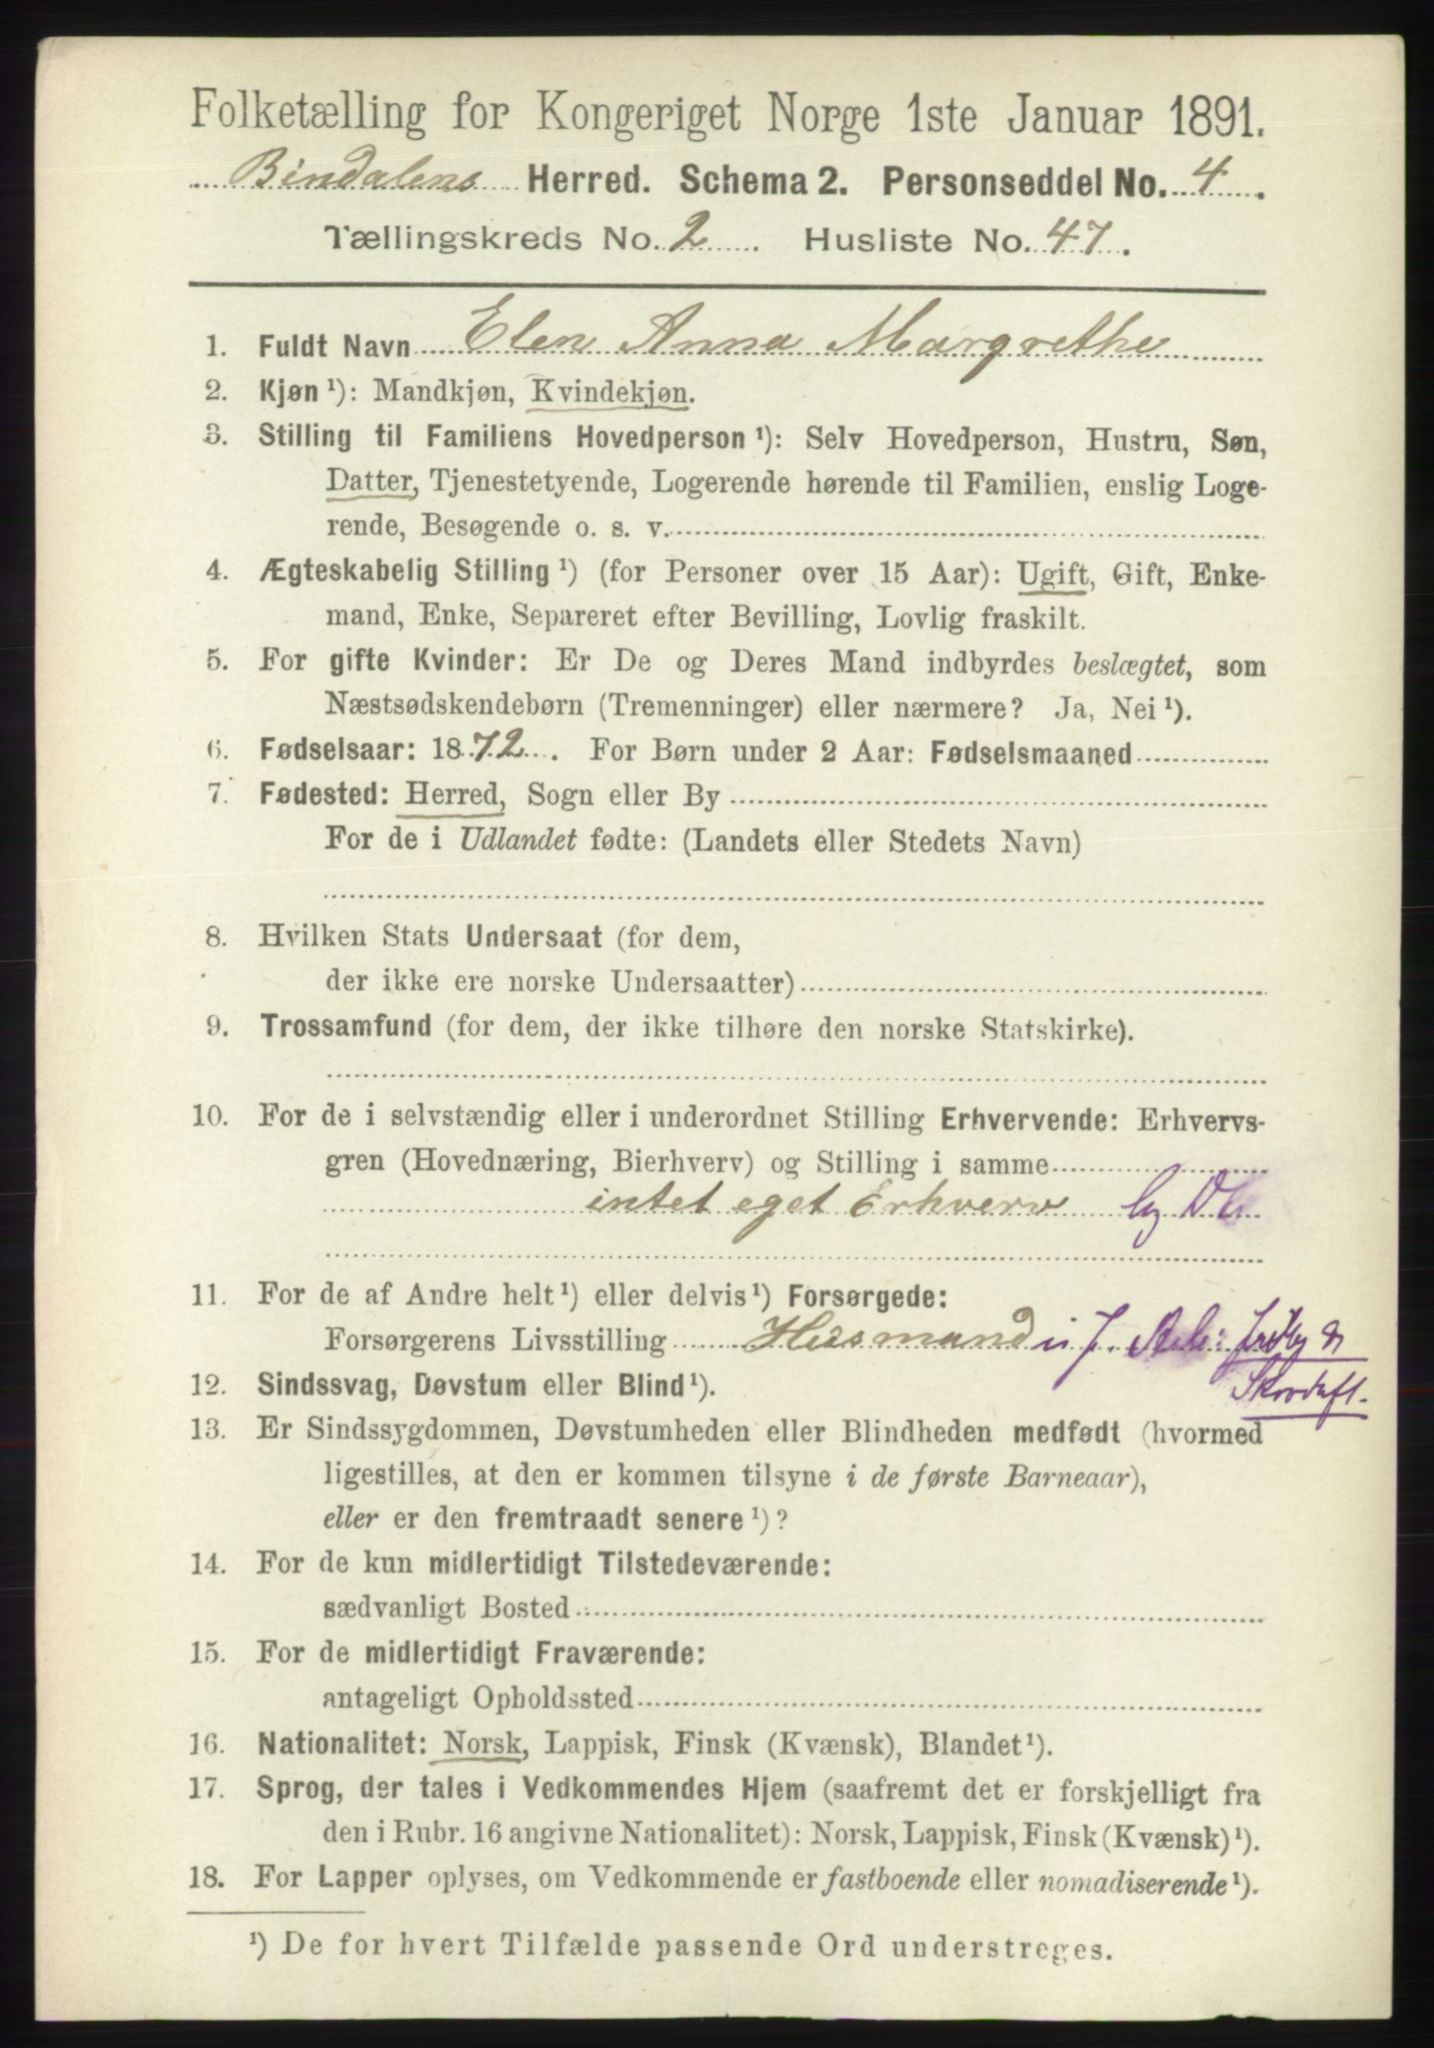 Folketælling for Kongeriget Norge 1ste Januar 1891.
Bindalens Herred. Schema 2. Personseddel No. 4.
Tællingskreds No. 2. Husliste No. 47.
1. Fuldt Navn Elen Anna Margrethe
2. Kjøn ¹): Mandkjøn, Kvindekjøn.
3. Stilling til Familiens Hovedperson ¹): Selv Hovedperson, Hustru, Søn,
Datter, Tjenestetyende, Logerende hørende til Familien, enslig Loge-
rende, Besøgende o. s. v.
4. Ægteskabelig Stilling ¹) (for Personer over 15 Aar): Ugift, Gift, Enke-
mand, Enke, Separeret efter Bevilling, Lovlig fraskilt.
5. For gifte Kvinder: Er De og Deres Mand indbyrdes beslægtet, som
Næstsødskendebørn (Tremenninger) eller nærmere? Ja, Nei ¹).
6. Fødselsaar: 1872. For Børn under 2 Aar: Fødselsmaaned
7. Fødested: Herred, Sogn eller By
For de i Udlandet fødte: (Landets eller Stedets Navn)
8. Hvilken Stats Undersaat (for dem,
der ikke ere norske Undersaatter)
9. Trossamfund (for dem, der ikke tilhøre den norske Statskirke).
10. For de i selvstændig eller i underordnet Stilling Erhvervende: Erhvervs-
gren (Hovednæring, Bierhverv) og Stilling i samme
intet eget Erhverv
11. For de af Andre helt ¹) eller delvis ¹) Forsørgede:
Forsørgerens Livsstilling Husmand
12. Sindssvag, Døvstum eller Blind ¹).
13. Er Sindssygdommen, Døvstumheden eller Blindheden medfødt (hvormed
ligestilles, at den er kommen tilsyne i de første Barneaar),
eller er den fremtraadt senere ¹)?
14. For de kun midlertidigt Tilstedeværende:
sædvanligt Bosted
15. For de midlertidigt Fraværende:
antageligt Opholdssted
16. Nationalitet: Norsk, Lappisk, Finsk (Kvænsk), Blandet ¹).
17. Sprog, der tales i Vedkommendes Hjem (saafremt det er forskjelligt fra
den i Rubr. 16 angivne Nationalitet): Norsk, Lappisk, Finsk (Kvænsk) ¹).
18. For Lapper oplyses, om Vedkommende er fastboende eller nomadiserende ¹).
¹) De for hvert Tilfælde passende Ord understreges.